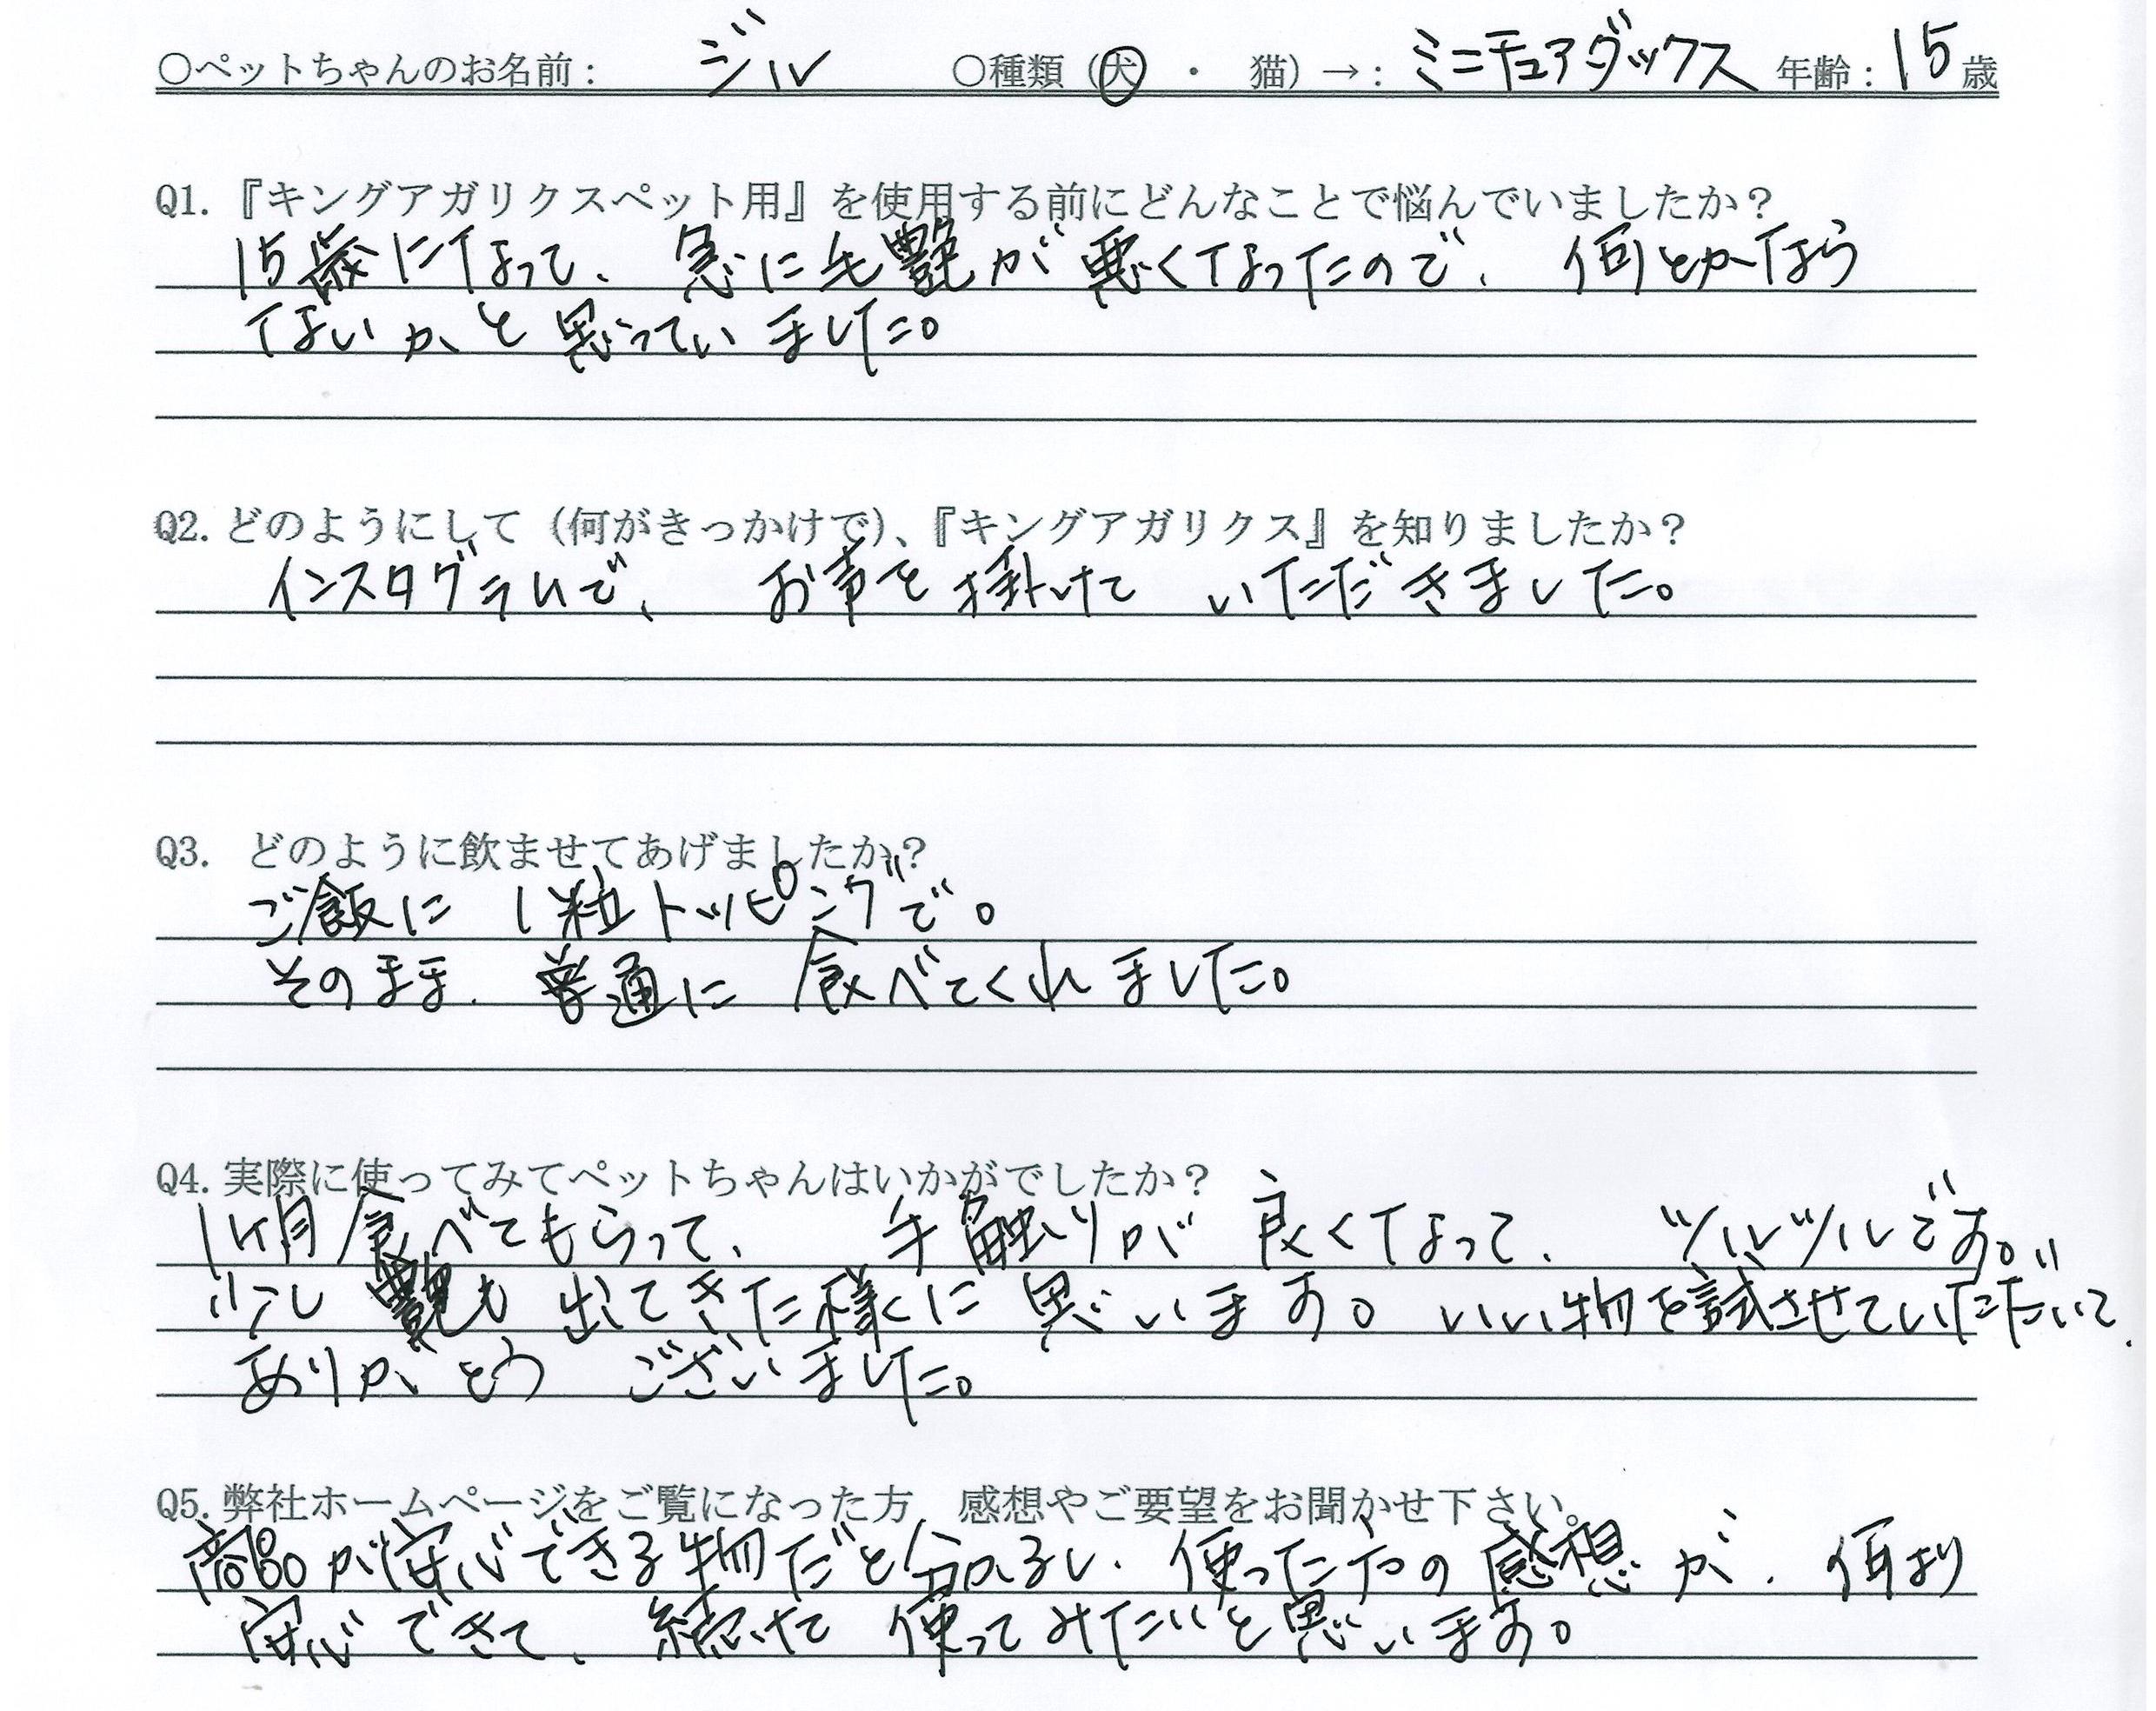 ○ペットちゃんのお名前： ジル ○種類（犬 ・ 猫）→：ミニチュアダックス 年齢：15歳
Q1.『キングアガリクスペット用』を使用する前にどんなことで悩んでいましたか？
15歳になって、急に毛艶が悪くなったので、何とかなら
ないかと思っていました。
Q2.どのようにして（何がきっかけで）、『キングアガリクス』を知りましたか？
インスタグラムで、お声を掛けていただきました。
Q3. どのように飲ませてあげましたか？
ご飯に1粒トッピングで。
そのまま、普通に食べてくれました。
Q4.実際に使ってみてペットちゃんはいかがでしたか？
1ヶ月食べてもらって、手触りが良くなって、ツルツルです。
少し艶も出てきた様に思います。いい物を試させていただいて、
ありがとうございました。
Q5.弊社ホームページをご覧になった方 感想やご要望をお聞かせ下さい。
商品が安心できる物だと分かるし、使った方の感想が、何より
安心できて、続けて使ってみたいと思います。